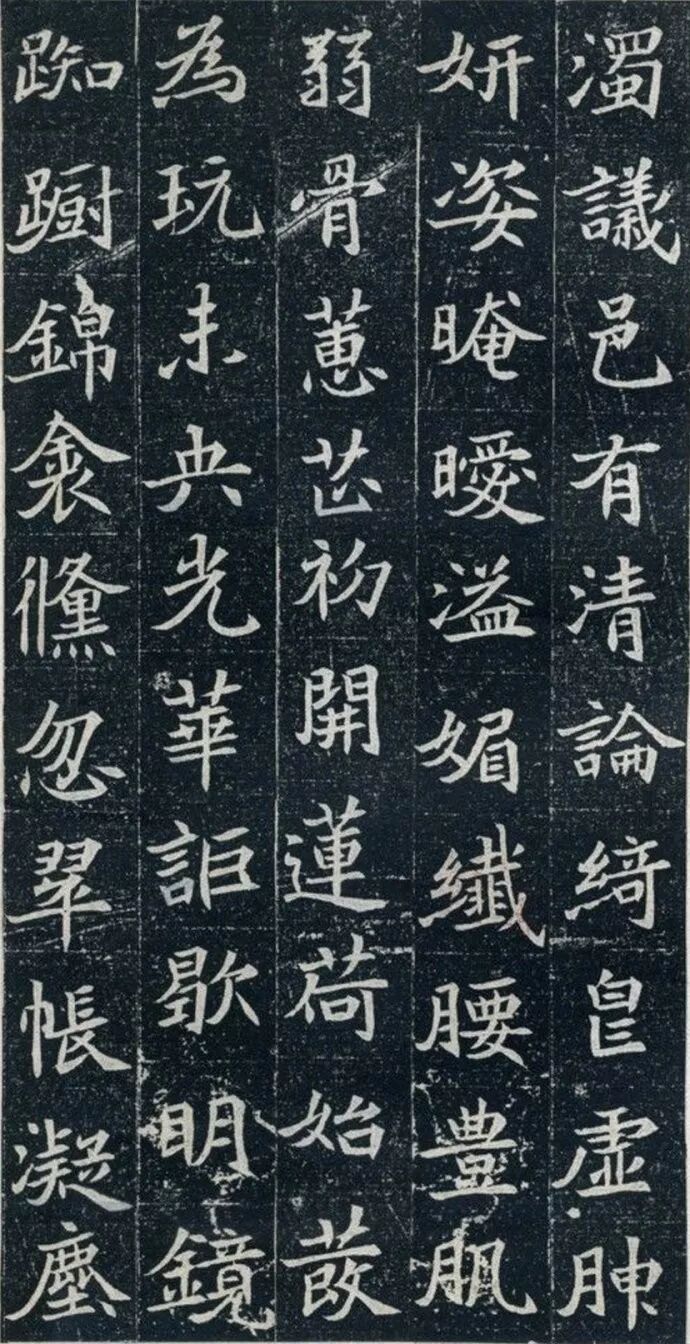 濁議邑有清論綺皀虛胂
妍姿晻曖溢媚纖腰豊肌
弱骨蕙芷初開蓮荷始蕟
為玩未央光華詎歇明鏡
踟躕錦衾儵忽翠帳凝塵